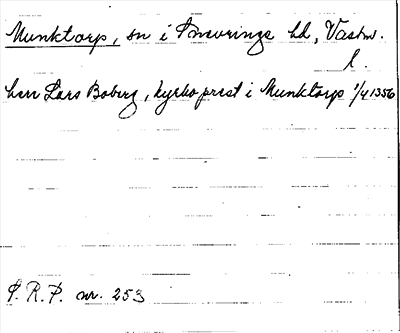 Munktorp, sn i Snevringe hd, Västm.
l.
herr Lars Boberg, kyrkoprest i Munktorp 1/4 1356
S. R. P. nr. 253